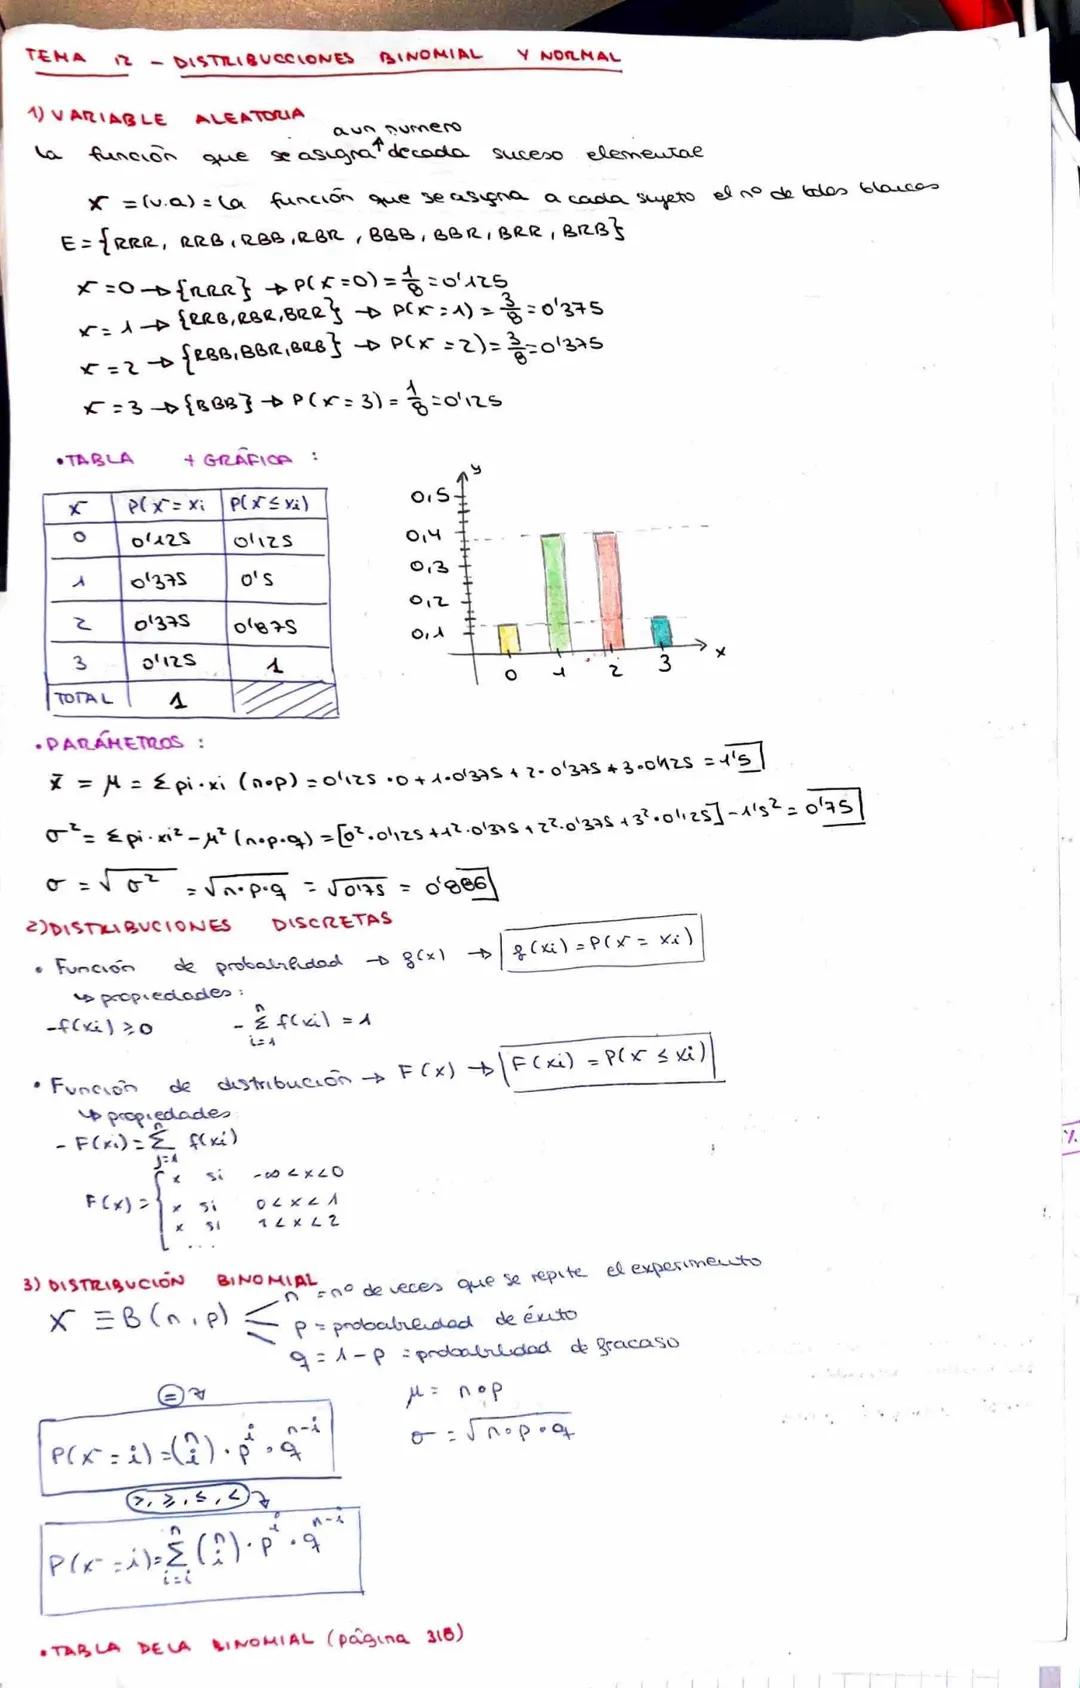 TEMA 12 - DISTRIBUCCIONES BINOMIAL Y NORMAL
1) VARIABLE ALEATORIA
a un numero
La función que se asigna ↑ de cada suceso elemental
X = (v.a) = la función que se asigna a cada sujeto el nº de bolas blancas
E = {RRR, RRB, RBB, RBR, BBB, BBR, BRR, BRB}
X = 0 → {RRR} → P(X = 0) = 1/8 = 0'125
X = 1 → {RRB, RBR, BRR} → P(X = 1) = 3/8 = 0'375
X = 2 → {RBB, BBR, BRB} → P(X = 2) = 3/8 = 0'375
X = 3 → {BBB} → P(X = 3) = 1/8 = 0'125
• TABLA + GRÁFICA :
X P(X = xi P(X ≤ xi)
0 0'125 0'125
1 0'375 0'5
2 0'375 0'875
3 0'125 1
TOTAL 1
y
0,5
0,4
0,3
0,2
0,1
0 1 2 3 x
• PARÁMETROS :
x̄ = μ = Σ pi · xi (n·p) = 0'125 · 0 + 1 · 0'375 + 2 · 0'375 + 3 · 0'125 = 1'5
σ² = Σ pi · xi² - μ² (n·p·q) = [0² · 0'125 + 1² · 0'375 + 2² · 0'375 + 3² · 0'125] - 1'5² = 0'75
σ = √σ² = √n·p·q = √0'75 = 0'886
2) DISTRIBUCIONES DISCRETAS
• Función de probabilidad → f(x) → f(xi) = P(X = xi)
↳ propiedades :
- f(xi) ≥ 0 - Σ f(xi) = 1
n
i=1
• Función de distribución → F(x) → F(xi) = P(X ≤ xi)
↳ propiedades
n
- F(xi) = Σ f(xi)
j=1
x si -∞ < x < 0
F(x) = { x si 0 < x < 1
x si 1 < x < 2
...
3) DISTRIBUCIÓN BINOMIAL
n = nº de veces que se repite el experimento
X ≡ B(n, p) p = probabilidad de éxito
q = 1 - p = probabilidad de fracaso
= μ = n · p
σ = √n·p·q
P(X = i) = (n i) · p^i · q^n-i
>, ≥, ≤, <
n
P(X = i) = Σ (n i) · p^i · q^n-i
i=i
• TABLA DE LA BINOMIAL (página 318)
%